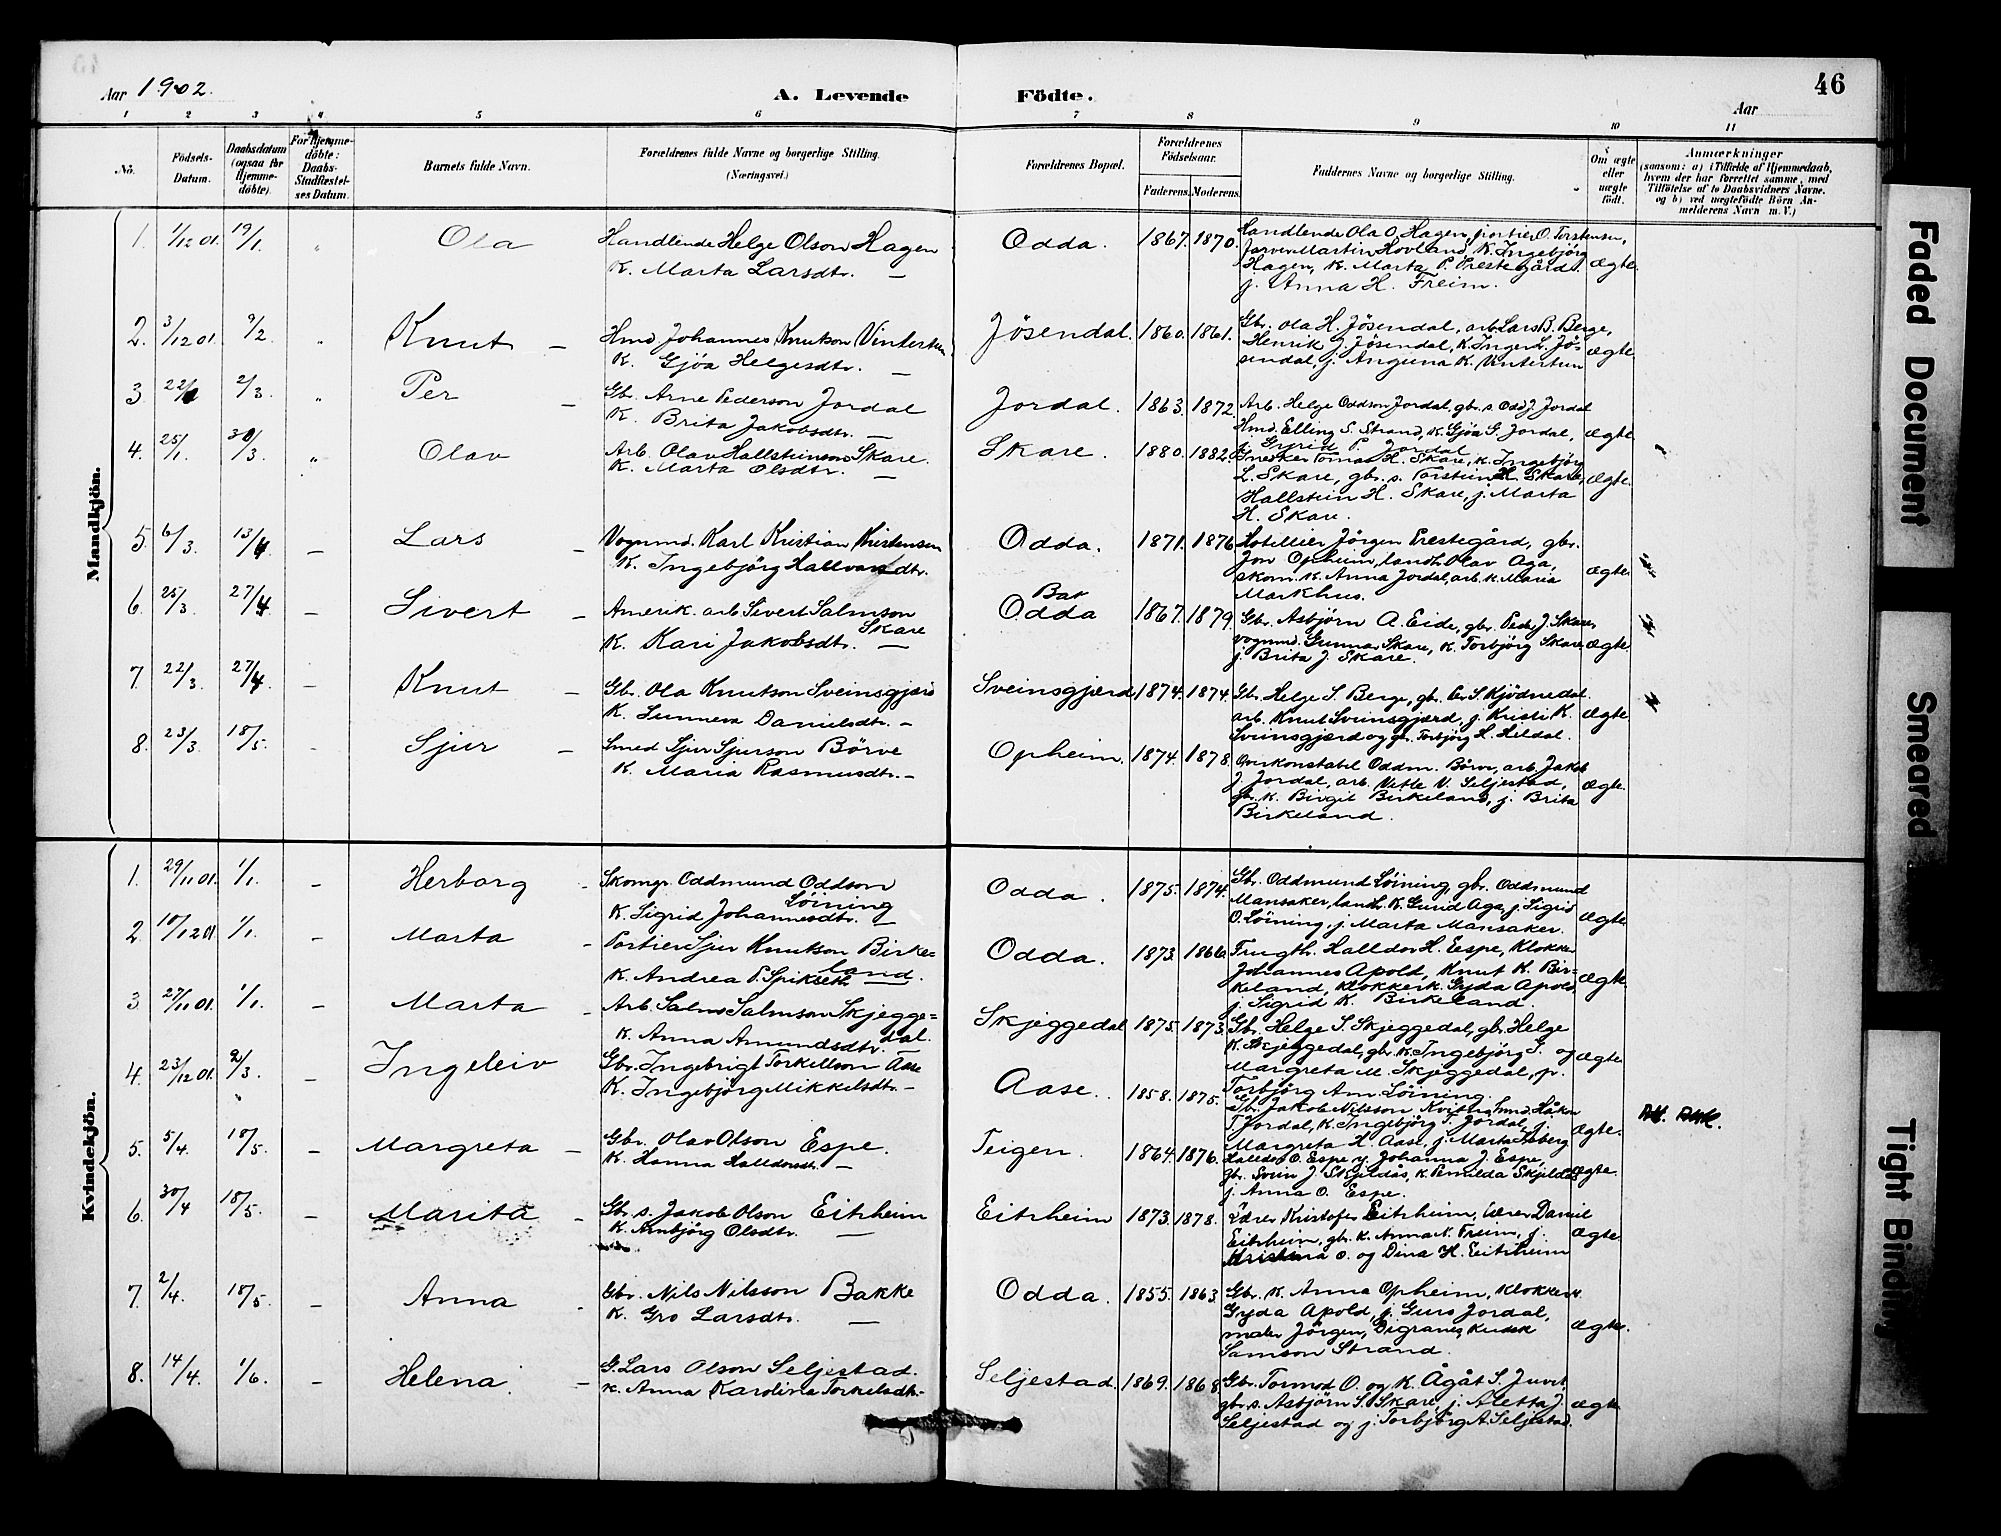 Aar 1902.
A. Levende Födte.
46
Aar
1 2 3 4 5 6 7 8 9 10 11
No.
Födsels-Datum.
Daabsdatum (ogsaa for Hjemme-döbte).
For Hjemme-döbte: Daabs-Stadfæstel-ses Datum.
Barnets fulde Navn.
Forældrenes fulde Navne og borgerlige Stilling. (Næringsvei.)
Forældrenes Bopæl.
Forældrenes Födselsaar.
Faderens. Moderens.
Faddernes Navne og borgerlige Stilling.
Om ægte eller uægte födt.
Anmærkninger
(saasom: a) i Tilfælde af Hjemmedaab,
hvem der har forrettet samme, med
Tilföielse af to Daabsvidners Navne.
og b) ved uægtefödte Börn An-
melderens Navn m. V.)
Mandkjön.
1. 1/12 01. 19/1. Ola
Handlende Helge Olson Hagen
K. Marta Larsdtr. —
Odda. 1867. 1870.
Handlende Ola O. Hagen, portier O. Torstensen,
farver Martin Hovland, K. Ingebjörg
Hagen, K. Marta P. Prestegård.
j. Anna H. Freim.
ægte.
2. 3/12 01. 9/2. Knut —
Hmd Johannes Knutson Vintertun
K. Gjöa Helgesdtr. —
Jösendal. 1860. 1861.
Gbr. Ola H. Jösendal, arb. Lars B. Berge,
Henrik J. Jösendal, K. Inger L. Jö-
sendal, j. Anguna K. Vintertun
ægte.
3. 2/3. Per —
Gbr. Arne Pederson Jordal
K. Brita Jakobsdtr. —
Jordal. 1863. 1872.
Arb. Helge Oddson Jordal, gbr. s. Odd J. Jordal
Hmd. Elling S. Strand, K. Gjöa G. Jordal,
j. Gyrid P. Jordal
ægte.
4. 25/1. 30/3. Olav
Arb. Olav Hallsteinson Skare.
K. Marta Olsdtr. —
Skare. 1880. 1882.
Snekker Tomas H. Skare, K. Ingebjörg
L. Skare, gbr. s. Torstein H. Skare,
Hallstein H. Skare, j. Marta
H. Skare.
ægte.
5. 6/3. 13/4. Lars —
Vognmd. Karl Kristian Kristensen
K. Ingebjörg Hallvarsdtr.
Odda. 1871. 1876
Hotellier Jörgen Prestegård, gbr.
Jon Opheim, landh. Olav Aga,
skom. K. Anna Jordal, arb. k. Maria
Markhus.
ægte.
6. 25/3. 27/4. Sivert —
Amerik. arb. Sivert Salmson
Skare
K. Kari Jakobsdtr. —
Odda 1867. 1879.
Gbr. Asbjörn A. Eide, gbr. Peder J. Skare,
vognmd. Gunnar Skare, K. Torbjörg Skare
j. Brita J. Skare.
ægte.
7. 22/3. 27/4. Knut —
Gbr. Ola Knutson Sveinsgjærd
K. Sunneva Danielsdtr. —
Sveinsgjærd 1874. 1874.
Gbr. Helge S. Berge, gbr. Per S. Kjödnedal.
arb. Knut Sveinsgjærd, j. Kristi K.
Sveinsgjærd og Torbjörg H. Hildal.
ægte
8. 23/3. 18/5. Sjur —
Smed Sjur Sjurson Börve
K. Maria Rasmusdtr. —
Opheim. 1874. 1878.
Overkonstabel Oddm. Börve, arb. Jakob
J. Jordal, arb. Vetle V. Seljestad,
gbr. K. Birgit Birkeland, j. Brita
Birkeland.
ægte.
Kvindekjön.
1. 29/11 01. 1/1. Herborg
Skomgr. Oddmund Oddson
Löining
K. Sigrid Johannesdtr. —
Odda. 1875. 1874.
Gbr. Oddmund Löining, gbr. Oddmund
Mansaker, landh. K. Gunild Aga, j. Sigrid
O. Löining, j. Marta Mansaker.
ægte
2. 10/12 01. 1/1. Marta
Portier Sjur Knutson Birke=
land.
K. Andrea P.
Odda. 1873. 1866.
Frugth. Halldor H. Espe, Klokker
Johannes Apold, Knut K. Bir=
keland, Klokkerk. Gyda Apold
j. Sigrid K. Birkeland.
ægte.
3 27/11 01. 1/1. Marta
Arb. Salm. Salmson Skjegge=
dal.
K. Anna Amundsdtr.
Skjeggedal 1875. 1873.
Gbr. Helge S. Skjeggedal, gbr. Helge
K. Skjeggedal, gbr. K. Ingebjörg S. og
Margreta M. Skjeggedal, p.
Torbjörg Am. Löining.
ægte
4. 23/12 01. 2/3. Ingeleiv
Gbr. Ingebrigt Torkellson Aase
K. Ingebjörg Mikkelsdtr. —
Aase. 1858. 1875.
Gbr. Jakob Nilsson Kvitno, hmd. Håkon
T. Jordal, K. Ingebjörg T. Jordal, j.
Margreta H. Aase, j. Marta Isberg
ægte.
5. 5/4. 18/5. Margreta —
Gbr. Olav Olson Espe.
K. Hanna Halldorsdtr. —
Teigen. 1864. 1876.
Halldor O. Espe, j. Johanna J. Espe,
gbr. Svein J. Skjeldås, K. Pernilda Skjeldås
j. Anna O. Espe.
ægte.
6. 30/4 18/5. Marita —
Gbr. s. Jakob Olson Eitrheim
K. Arnbjörg Olsdtr. —
Eitrheim 1873. 1878.
Kristofer Eitrheim, lærer Daniel
Eitrheim, gbr. K. Anna N. Freim, j.
Kristina O. og Dina H. Eitrheim
ægte.
7. 2/4. 18/5. Anna
Gbr. Nils Nilsson Bakke
K. Gro Larsdtr. —
Odda. 1855. 1863.
Gbr. K. Anna Opheim, Klokkerk.
Gyda Apold, j. Guro Jordal,
maler Jörgen Digranes,
Samson Strand.
ægte.
8. 14/4. 1/6. Helena. —
G. Lars Olson Seljestad.
K. Anna Karolina Torkelsdtr.
Seljestad. 1869. 1868.
Gbr. Tormod O. og K. Ågåt S. Juvet,
gbr. s. Asbjörn S. Skare, j. Aletta J.
Seljestad og j. Torbjörg A. Seljestad.
ægte
Faded Document
Smeared
Tight Binding